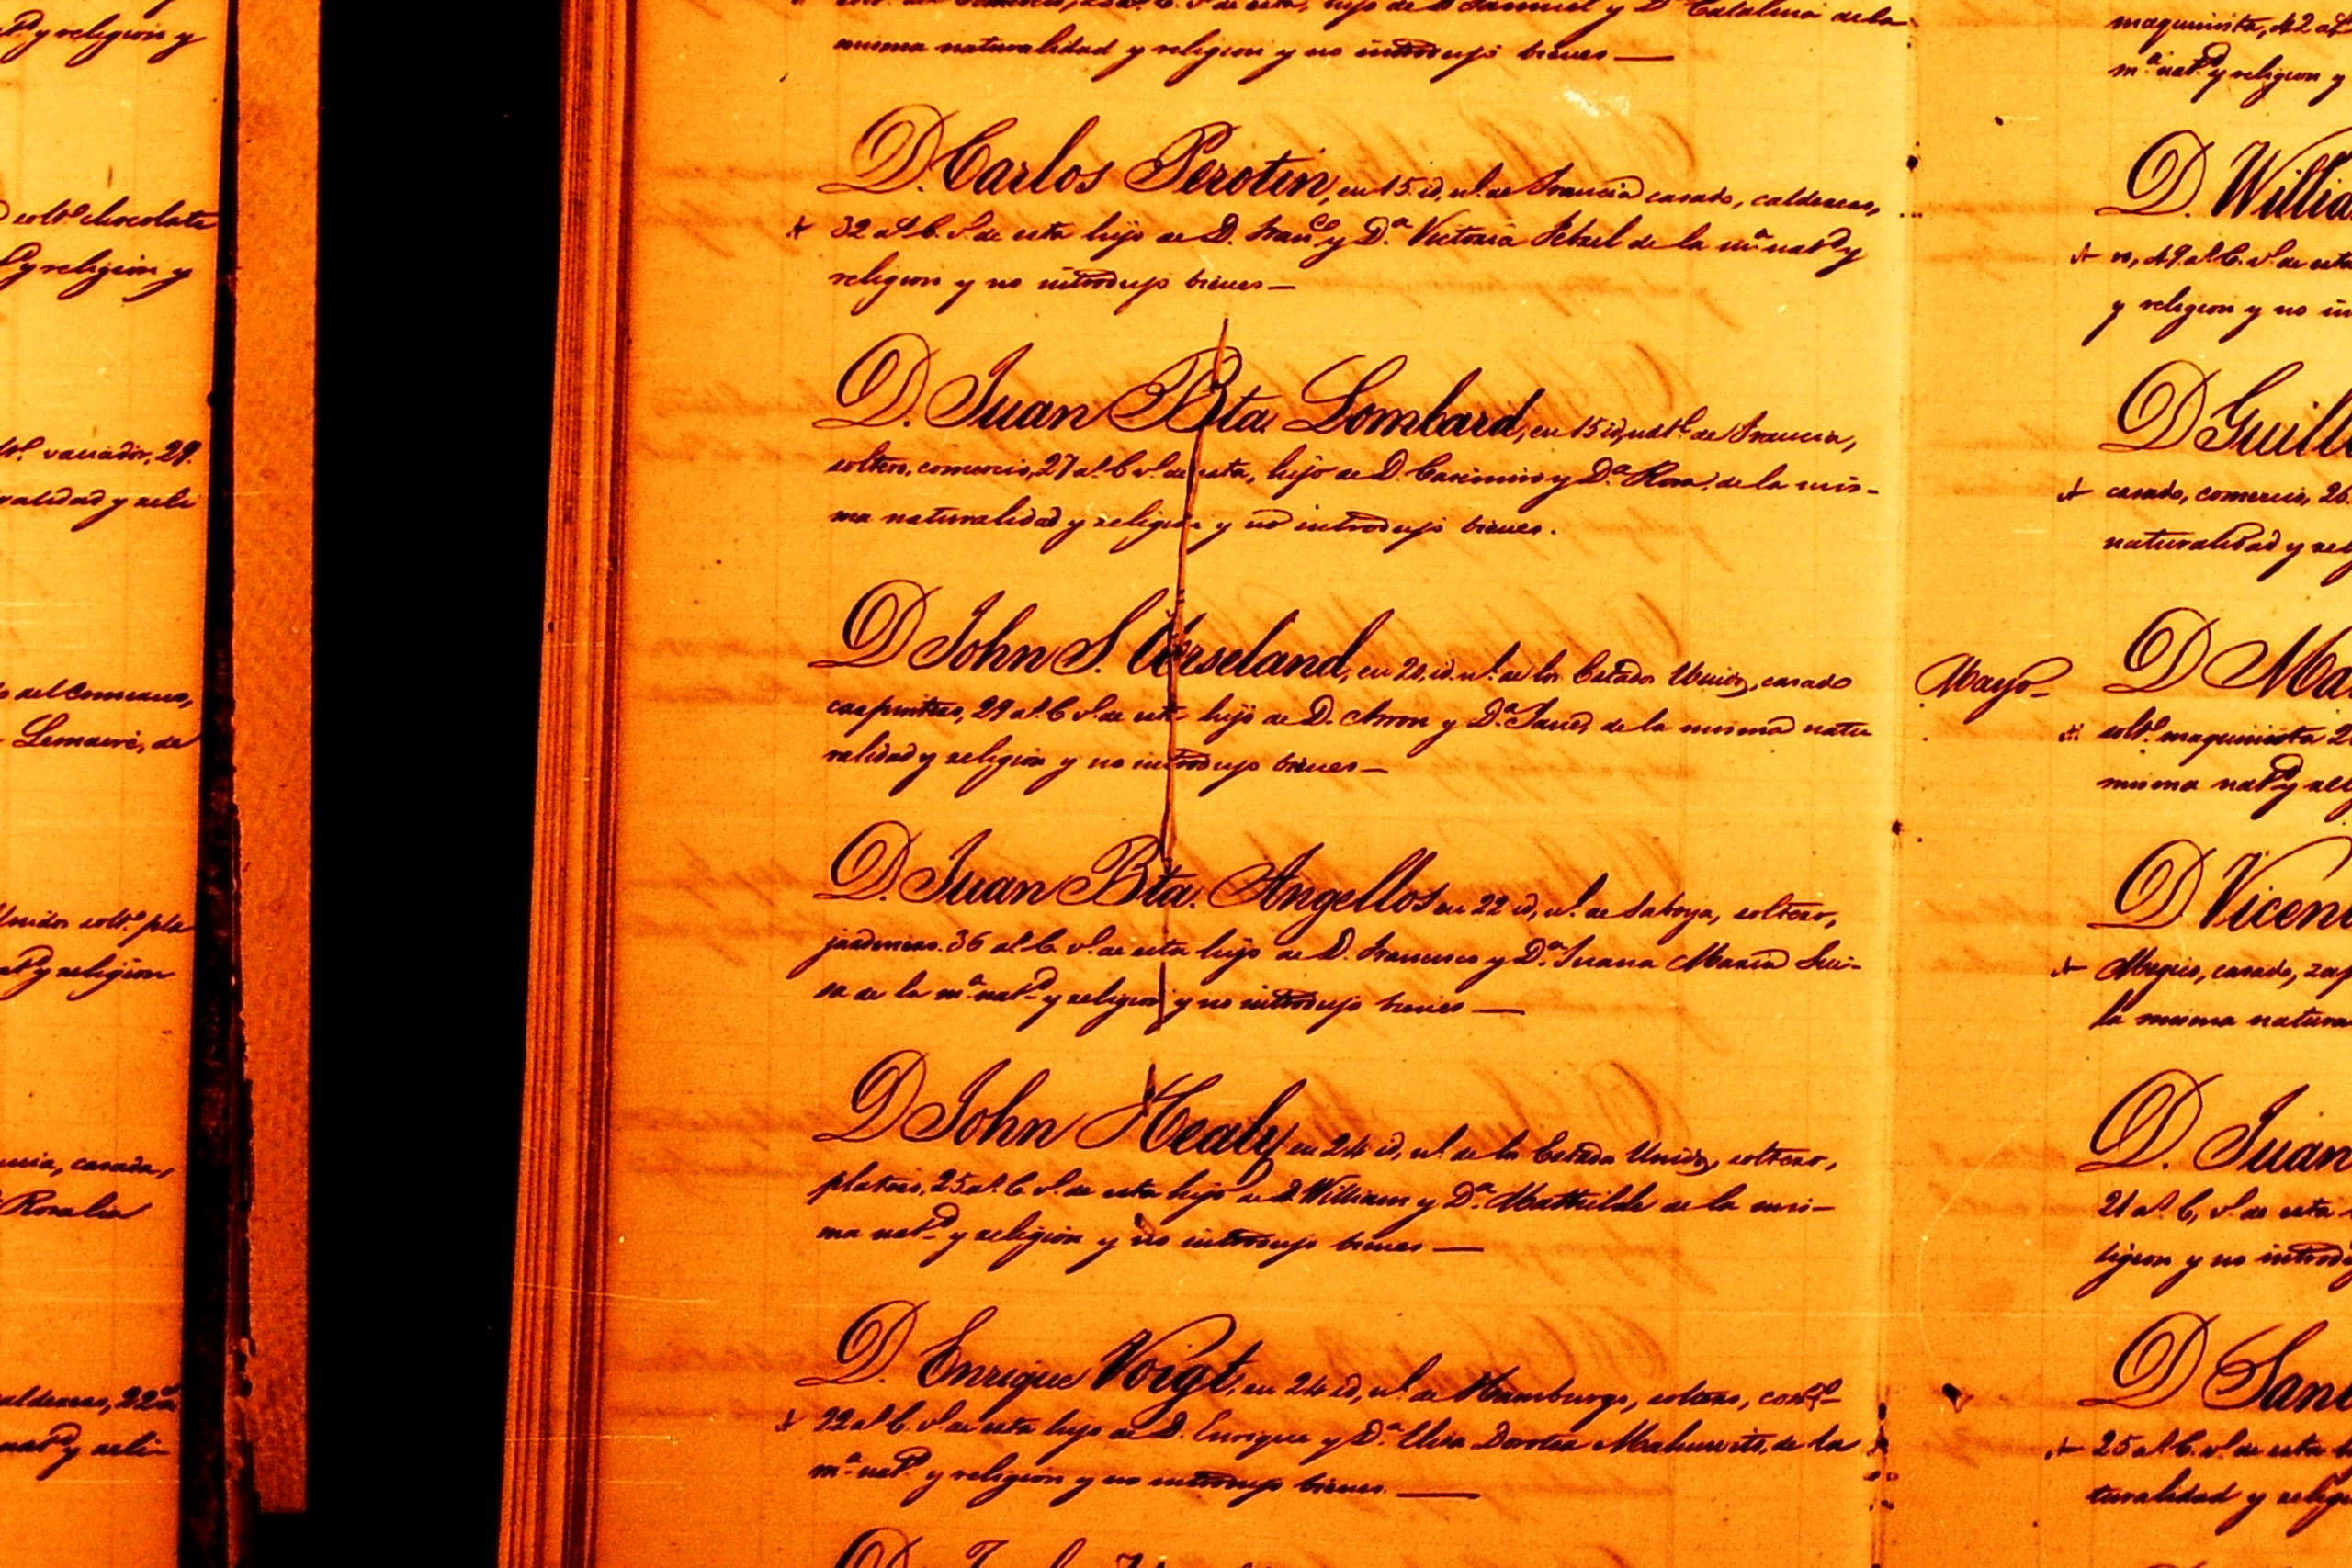 Dy religion y
solt.º chocolate
y religion y
vaciador, 29.
ralidad y reli
del Comercio,
Lemaire, de
Unidos solt.º pla
y religion
casada,
Rosalia
calderero, 22
y reli-
misma naturalidad y religion y no introdujo bienes —
D. Carlos Perotin, en 15. id, n.l de Francia casado, calderero,
32 a.s C. v.º de esta hijo de D. Fran.co y D.ª Victoria Petzel de la m.ª nat.d y
religion y no introdujo bienes —
D. Juan Bta. Lombard, en 15 id, nat.l de Francia,
soltero, comercio, 27 a.s C v.º de esta, hijo de D. Casimiro y D.ª Rosa, de la mis-
ma naturalidad y religion y no introdujo bienes.
D John S. Corseland, en 21, id. n.l de los Estados Unidos, casado
carpintero, 29 a.s C v.º de esta hijo de D. Arron y D.ª Janes, de la misma natu
ralidad y religion y no introdujo bienes —
D. Juan Bta. Angellos en 22 id, n.l de Saboya, soltero,
jardinero. 36 a.s C. v.º de esta hijo de D. Francisco y D.ª Juana Maria Sui-
sa de la m.ª nat.d y religion y no introdujo bienes —
D John Healy en 24 id, n.l de los Estados Unidos, soltero,
platero, 25 a.s C. v.º de esta hijo de D. William y D.ª Mathilde de la mis-
ma nat.d y religion y no introdujo bienes —
D. Enrique Voigt, en 24 id, n.l de Hamburgo, soltero,
22 a.s C. v.º de esta hijo de D. Enrique y D.ª Elisa Dorotea de la
m.ª nat.d y religion y no introdujo bienes. —
maquinista, 42
m.ª nat.d y religion y
D. Willia
49 a.s C. v.º de esta
y religion y no in
D Guill
casado, comercio, 26.
naturalidad y rel
Mayo —
D Ma
solt.º maquinista 2
misma nat.d y rel
D Vicen
Megico, casado, zap
la misma natura
D. Juan
21 a.s C, v.º de esta
ligion y no introd
D San
25 a.s C. v.º de esta
turalidad y relig